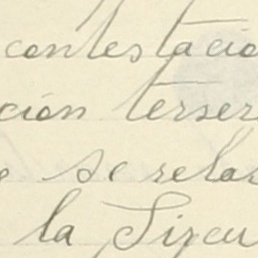 contestacio
cion terser
se relac
la Sircu